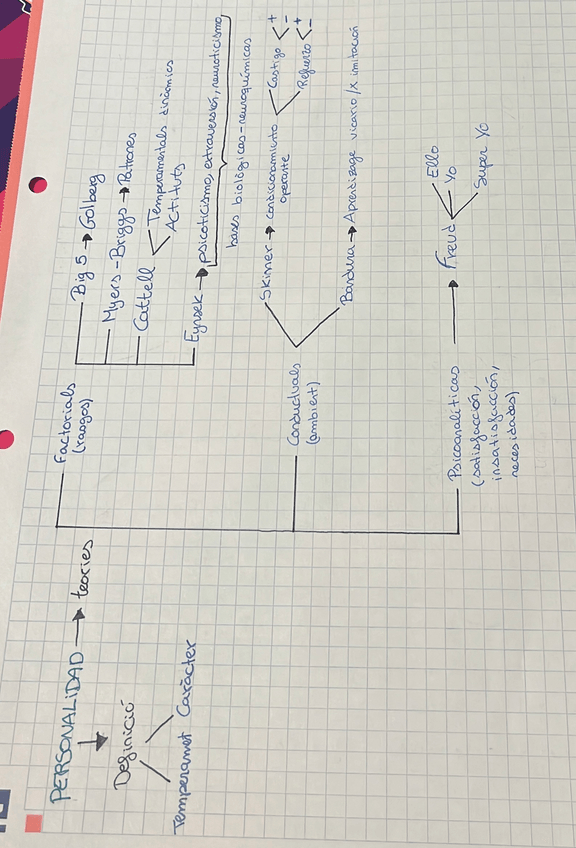 PERSONALIDAD → teories
Definició
Temperamet Caràcter
Factorials
(rasgos)
Big 5 → Golberg
Myers-Briggs → Patrones
Cattell
Temperamentals dinàmics
ACtituts
Eynsek → psicoticismo, extraversión, neuroticismo,
bases biológicas - neuroquímicas
Conductuals
(ambient)
Skinner → condicionamiento
operante
Castigo + -
Refuerzo + -
Bandura → Aprendizage vicario/x imitación
Psicoanalíticas
(satisfacción,
insatisfacción,
necesidades)
Freud
Ello
Yo
Super Yo